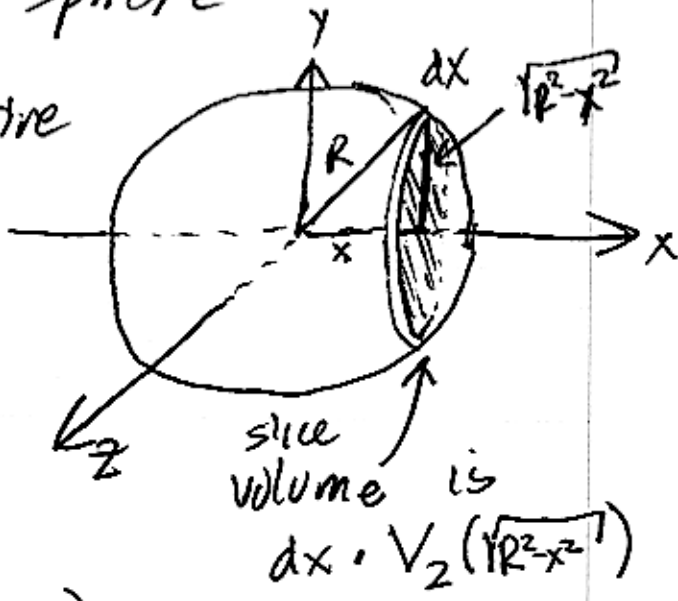 sphere
y
dx
√R²-x²
R
x
x
z
slice
volume is
dx · V₂(√R²-x²)